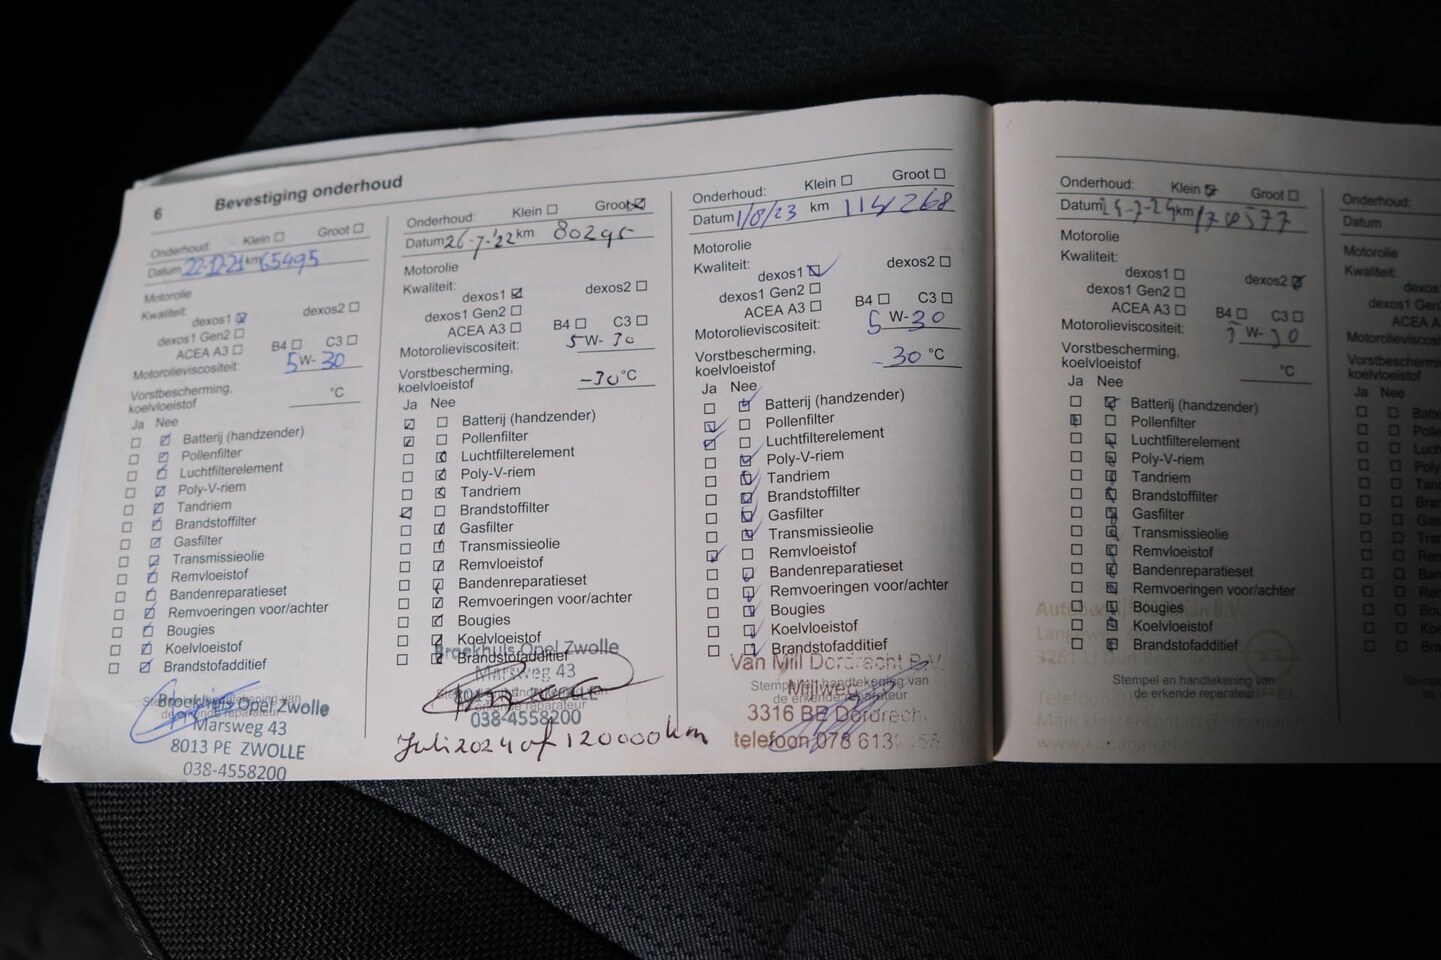 6 Bevestiging onderhoud
Onderhoud: Klein Groot
Datum 22-12-21 km 65495
Motorolie
Kwaliteit:
dexos1 dexos2
dexos1 Gen2
ACEA A3 B4 C3
Motorolieviscositeit: 5 W- 30
Vorstbescherming,
koelvloeistof °C
Ja Nee
Batterij (handzender)
Pollenfilter
Luchtfilterelement
Poly-V-riem
Tandriem
Brandstoffilter
Gasfilter
Transmissieolie
Remvloeistof
Bandenreparatieset
Remvoeringen voor/achter
Bougies
Koelvloeistof
Brandstofadditief
Stempel en handtekening van
de erkende reparateur
Broekhuis Opel Zwolle
Marsweg 43
8013 PE ZWOLLE
038-4558200
Onderhoud: Klein Groot
Datum 26-7-'22 km 80295
Motorolie
Kwaliteit:
dexos1 dexos2
dexos1 Gen2
ACEA A3 B4 C3
Motorolieviscositeit: 5 W- 30
Vorstbescherming,
koelvloeistof -30 °C
Ja Nee
Batterij (handzender)
Pollenfilter
Luchtfilterelement
Poly-V-riem
Tandriem
Brandstoffilter
Gasfilter
Transmissieolie
Remvloeistof
Bandenreparatieset
Remvoeringen voor/achter
Bougies
Koelvloeistof
Brandstofadditief
Broekhuis Opel Zwolle
Marsweg 43
ZWOLLE
038-4558200
Juli 2024 of 120000 km
Onderhoud: Klein Groot
Datum 1/8/23 km 114268
Motorolie
Kwaliteit:
dexos1 dexos2
dexos1 Gen2
ACEA A3 B4 C3
Motorolieviscositeit: 5 W- 30
Vorstbescherming,
koelvloeistof -30 °C
Ja Nee
Batterij (handzender)
Pollenfilter
Luchtfilterelement
Poly-V-riem
Tandriem
Brandstoffilter
Gasfilter
Transmissieolie
Remvloeistof
Bandenreparatieset
Remvoeringen voor/achter
Bougies
Koelvloeistof
Brandstofadditief
Van Mill Dordrecht B.V.
Stempel en handtekening van
de erkende reparateur
Millweg
3316 BE Dordrecht
telefoon 078 613
Onderhoud: Klein Groot
Datum km
Motorolie
Kwaliteit:
dexos1 dexos2
dexos1 Gen2
ACEA A3 B4 C3
Motorolieviscositeit: W- 30
Vorstbescherming,
koelvloeistof °C
Ja Nee
Batterij (handzender)
Pollenfilter
Luchtfilterelement
Poly-V-riem
Tandriem
Brandstoffilter
Gasfilter
Transmissieolie
Remvloeistof
Bandenreparatieset
Remvoeringen voor/achter
Bougies
Koelvloeistof
Brandstofadditief
Stempel en handtekening van
de erkende reparateur
OPEL
Onderhoud:
Datum
Motorolie
Kwaliteit:
dexos1 Gen
ACEA A
Vorstbescherming,
koelvloeistof
Ja Nee